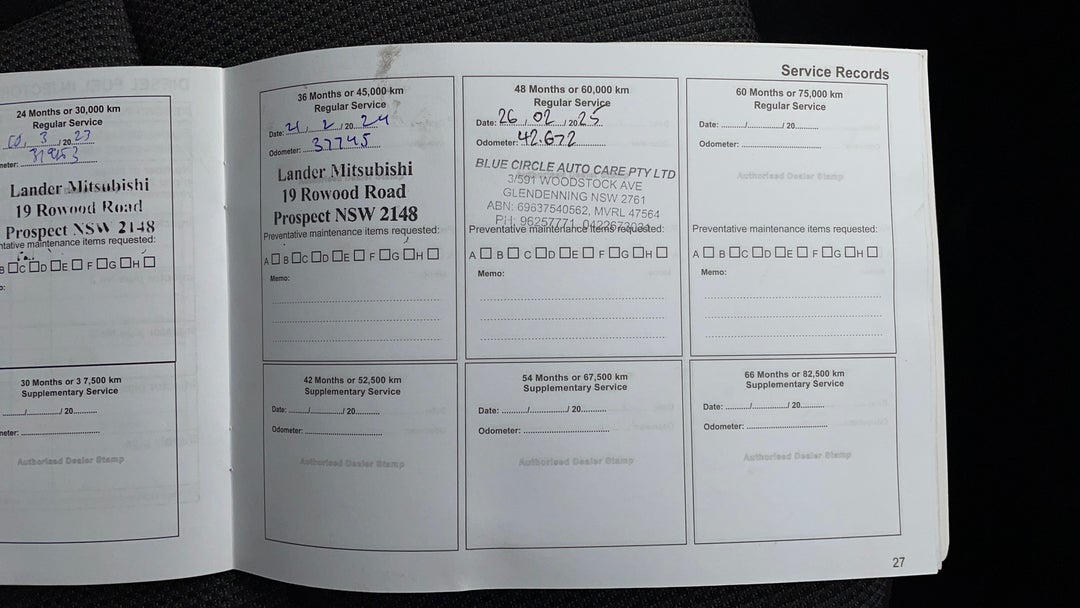 Service Records
24 Months or 30,000 km
Regular Service
3 / 20 23
meter:
Lander Mitsubishi
19 Rowood Road
Prospect NSW 2148
ntative maintenance items requested:
B C D E F G H
o:
36 Months or 45,000 km
Regular Service
Date: 21 / 2 / 20 24
Odometer: 37745
Lander Mitsubishi
19 Rowood Road
Prospect NSW 2148
Preventative maintenance items requested:
A B C D E F G H
Memo:
48 Months or 60,000 km
Regular Service
Date: 26 / 02 / 20 25
Odometer: 42.672
BLUE CIRCLE AUTO CARE PTY LTD
3/591 WOODSTOCK AVE
GLENDENNING NSW 2761
ABN: 69637540562, MVRL 47564
PH: 96257771
Preventative maintenance items requested:
A B C D E F G H
Memo:
60 Months or 75,000 km
Regular Service
Date: ......../................/ 20.........
Odometer: ................................
Authorised Dealer Stamp
Preventative maintenance items requested:
A B C D E F G H
Memo:
30 Months or 3 7,500 km
Supplementary Service
......../............/ 20.........
meter: ................................
Authorised Dealer Stamp
42 Months or 52,500 km
Supplementary Service
Date: ......../............/ 20.........
Odometer: ................................
Authorised Dealer Stamp
54 Months or 67,500 km
Supplementary Service
Date: ........./............./ 20.........
Odometer: ................................
Authorised Dealer Stamp
66 Months or 82,500 km
Supplementary Service
Date: ......../............./ 20.........
Odometer: ................................
Authorised Dealer Stamp
27